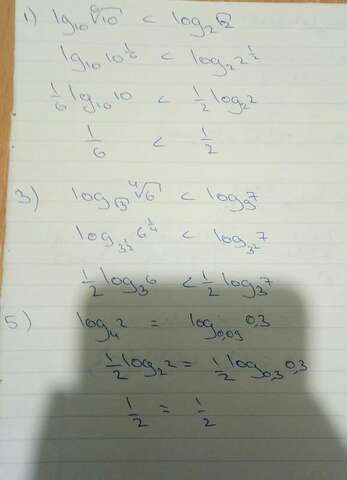 1) lg₁₀ ⁶√10 < log₂ √2
lg₁₀ 10^(1/6) < log₂ 2^(1/2)
1/6 log₁₀ 10 < 1/2 log₂ 2
1/6 < 1/2
3) log_√3 ⁴√6 < log₉ 7
log_3^(1/2) 6^(1/4) < log_3² 7
1/2 log₃ 6 < 1/2 log₃ 7
5) log₄ 2 = log₀,₀₉ 0,3
1/2 log₂ 2 = 1/2 log₀,₃ 0,3
1/2 = 1/2